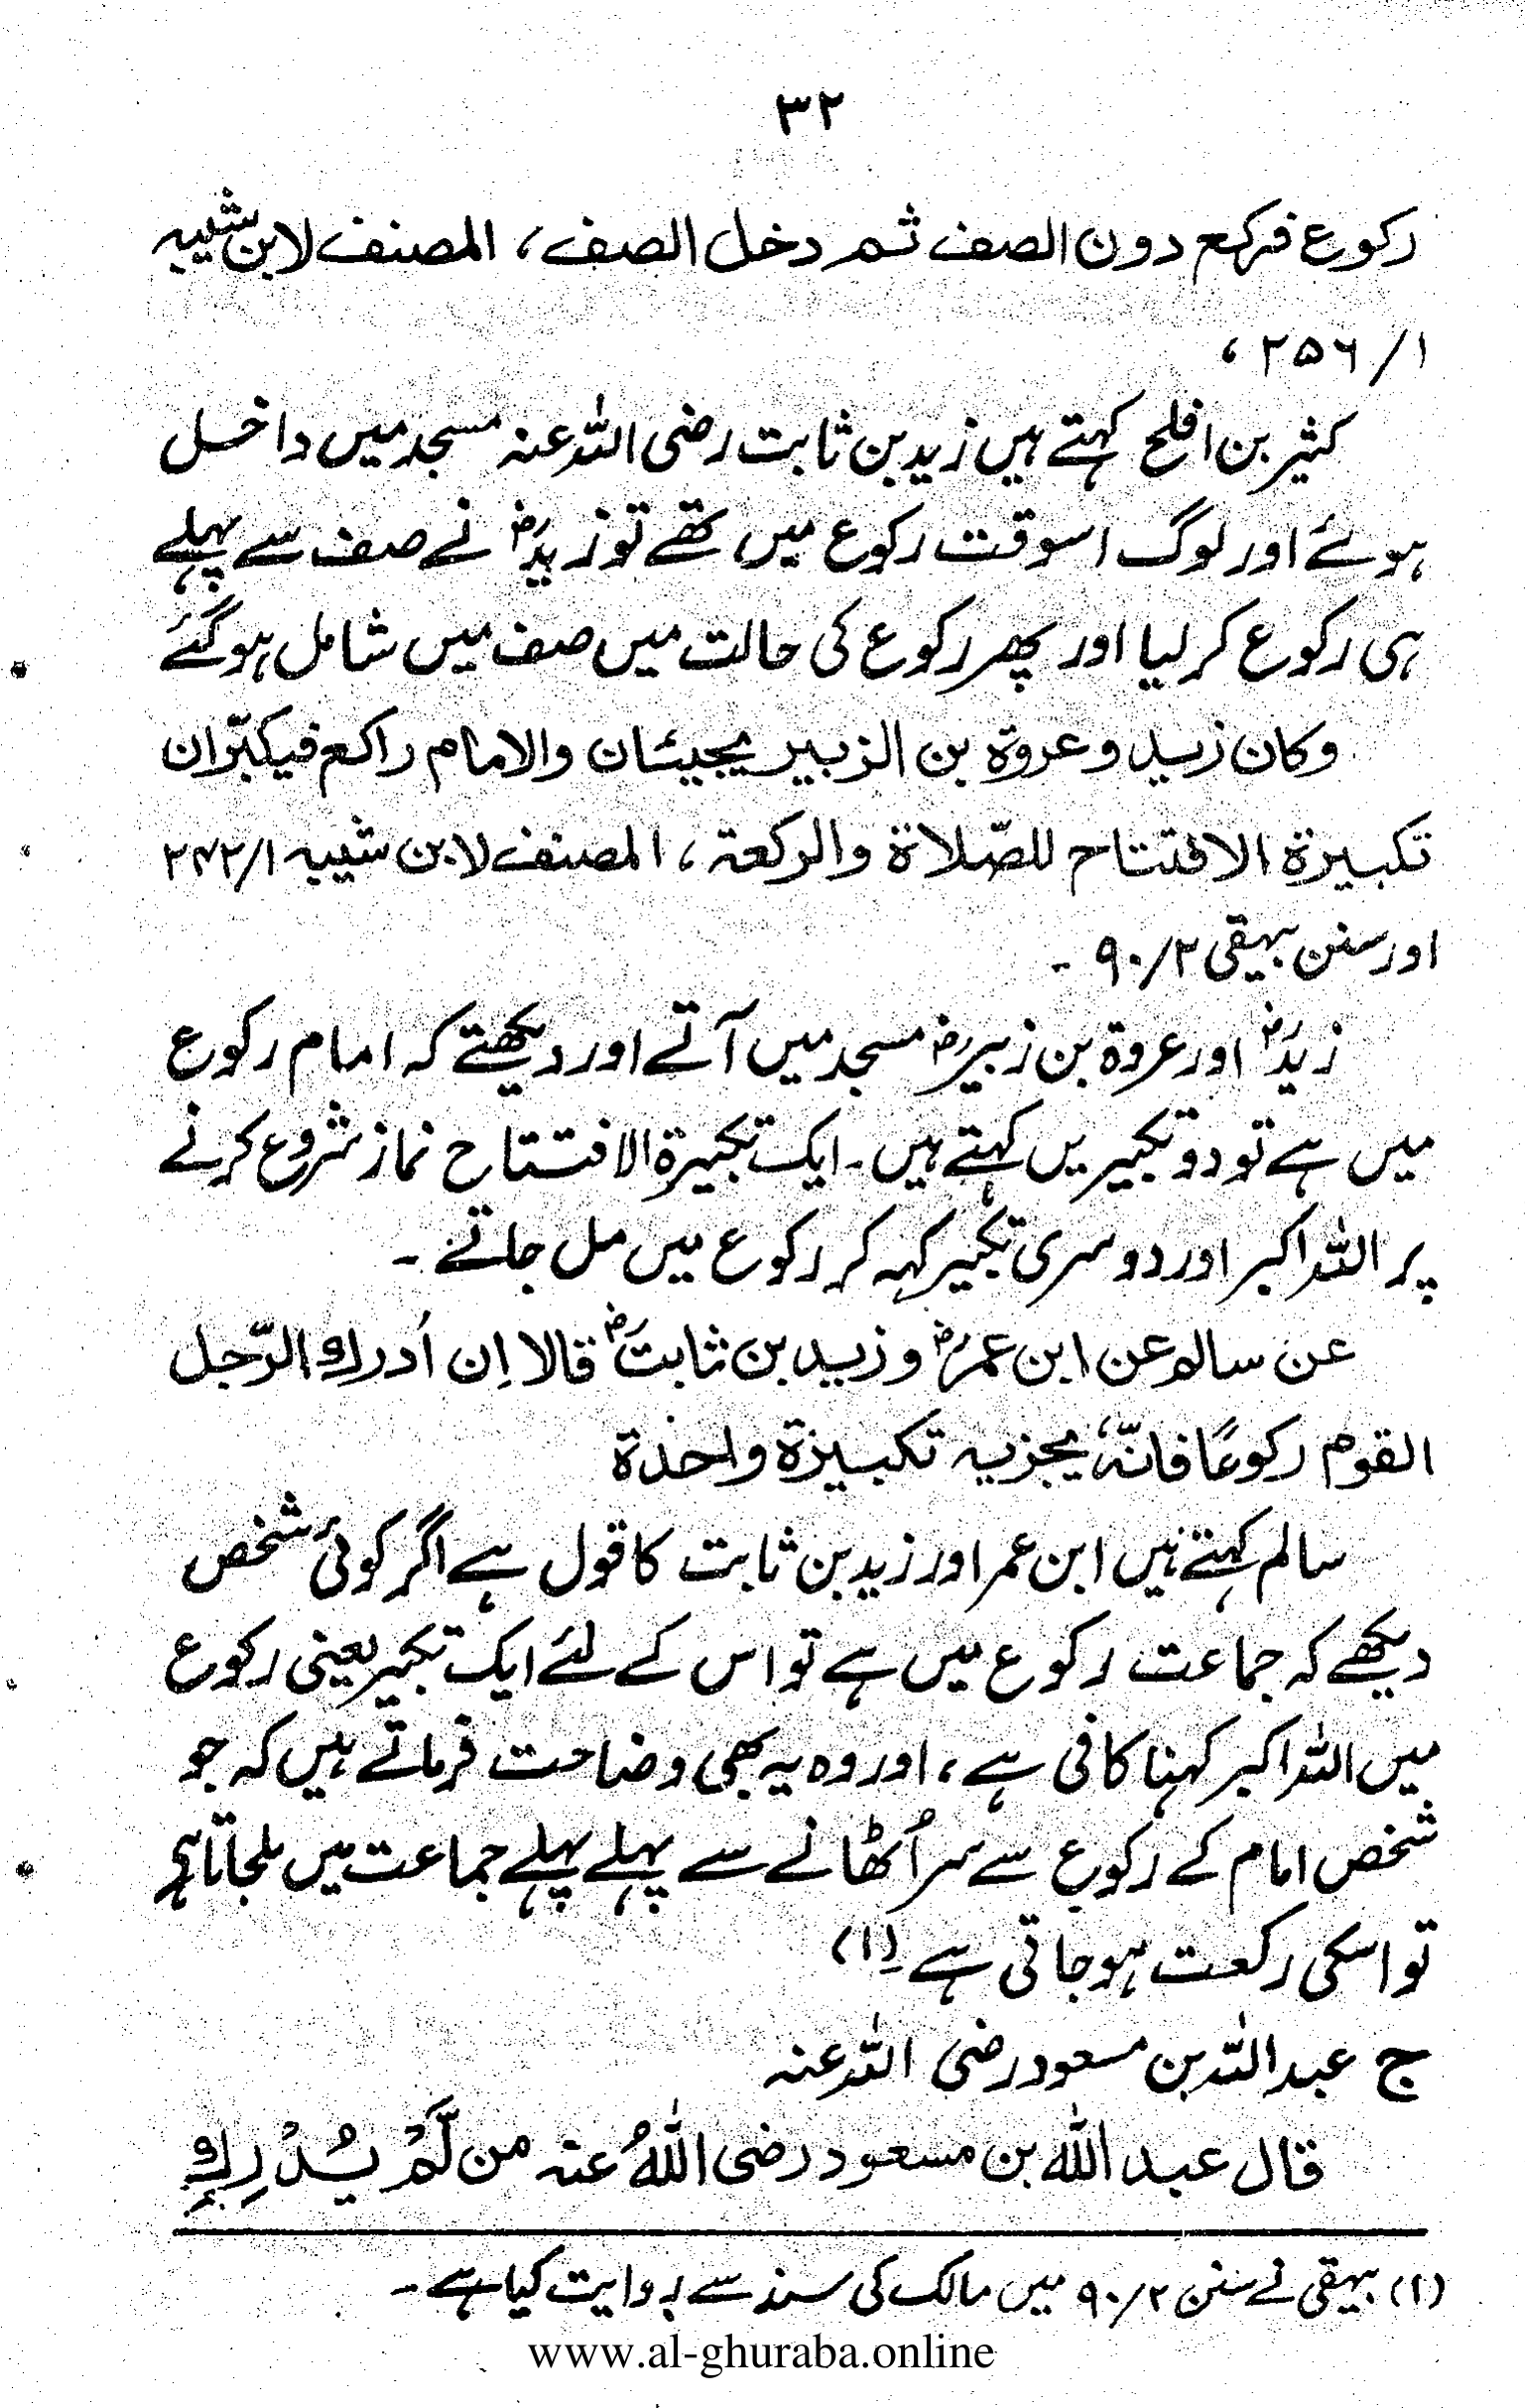 ۳۲
رکوع فرکع دون الصف ثم دخل الصف، المصنف لابن شیبہ
۱/۲۵۶،
کثیر بن افلح کہتے ہیں زید بن ثابت رضی اللہ عنہ مسجد میں داخل
ہوئے اور لوگ اسوقت رکوع میں تھے تو زیدؓ نے صف سے پہلے
ہی رکوع کر لیا اور پھر رکوع کی حالت میں صف میں شامل ہو گئے
وکان زید وعروة بن الزبیر یجیئان والامام راکع فیکبّران
تکبیرة الافتتاح للصّلاة والرکعة، المصنف لابن شیبہ ۱/۲۴۲
اور سنن بیہقی ۲/۹۰ ۔
زیدؓ اور عروۃ بن زبیرؓ مسجد میں آتے اور دیکھتے کہ امام رکوع
میں ہے تو دو تکبیریں کہتے ہیں۔ ایک تکبیرۃ الافتتاح نماز شروع کرنے
پر اللہ اکبر اور دوسری تکبیر کہہ کر رکوع میں مل جاتے ۔
عن سالم عن ابن عمرؓ و زید بن ثابتؓ قالا اِن اُدرك الرّجل
القوم رکوعًا فانّہٗ یجزیہ تکبیرة واحدة
سالم کہتے ہیں ابن عمر اور زید بن ثابت کا قول ہے اگر کوئی شخص
دیکھے کہ جماعت رکوع میں ہے تو اس کے لئے ایک تکبیر یعنی رکوع
میں اللہ اکبر کہنا کافی ہے، اور وہ یہ بھی وضاحت فرماتے ہیں کہ جو
شخص امام کے رکوع سے سر اُٹھانے سے پہلے پہلے جماعت میں ملجاتا ہے
تو اسکی رکعت ہو جاتی ہے (۱)
ج عبداللہ بن مسعود رضی اللہ عنہ
قال عبد اللّٰہ بن مسعود رضی اللّٰہُ عنہ من لَّمْ یُدْرِكِ
(۱) بیہقی نے سنن ۲/۹۰ میں مالک کی سند سے روایت کیا ہے ۔
www.al-ghuraba.online